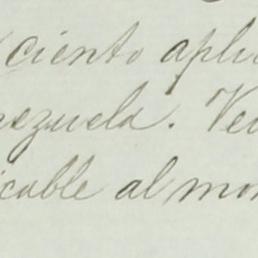 ciento apli
nezuela. Ve
icable al mo